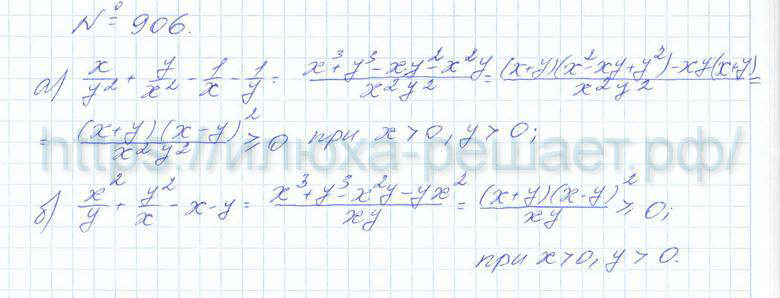 № 906.
а) x/y² + y/x² - 1/x - 1/y = (x³+y³-xy²-x²y)/(x²y²) = ((x+y)(x² xy+y²)-xy(x+y))/(x²y²) =
= ((x+y)(x-y)²)/(x²y²) ≥ 0 при x>0, y>0;
https://илюха-решает.рф/
б) x²/y + y²/x - x - y = (x³+y³-x²y-yx²)/(xy) = ((x+y)(x-y)²)/(xy) ≥ 0;
при x>0, y>0.